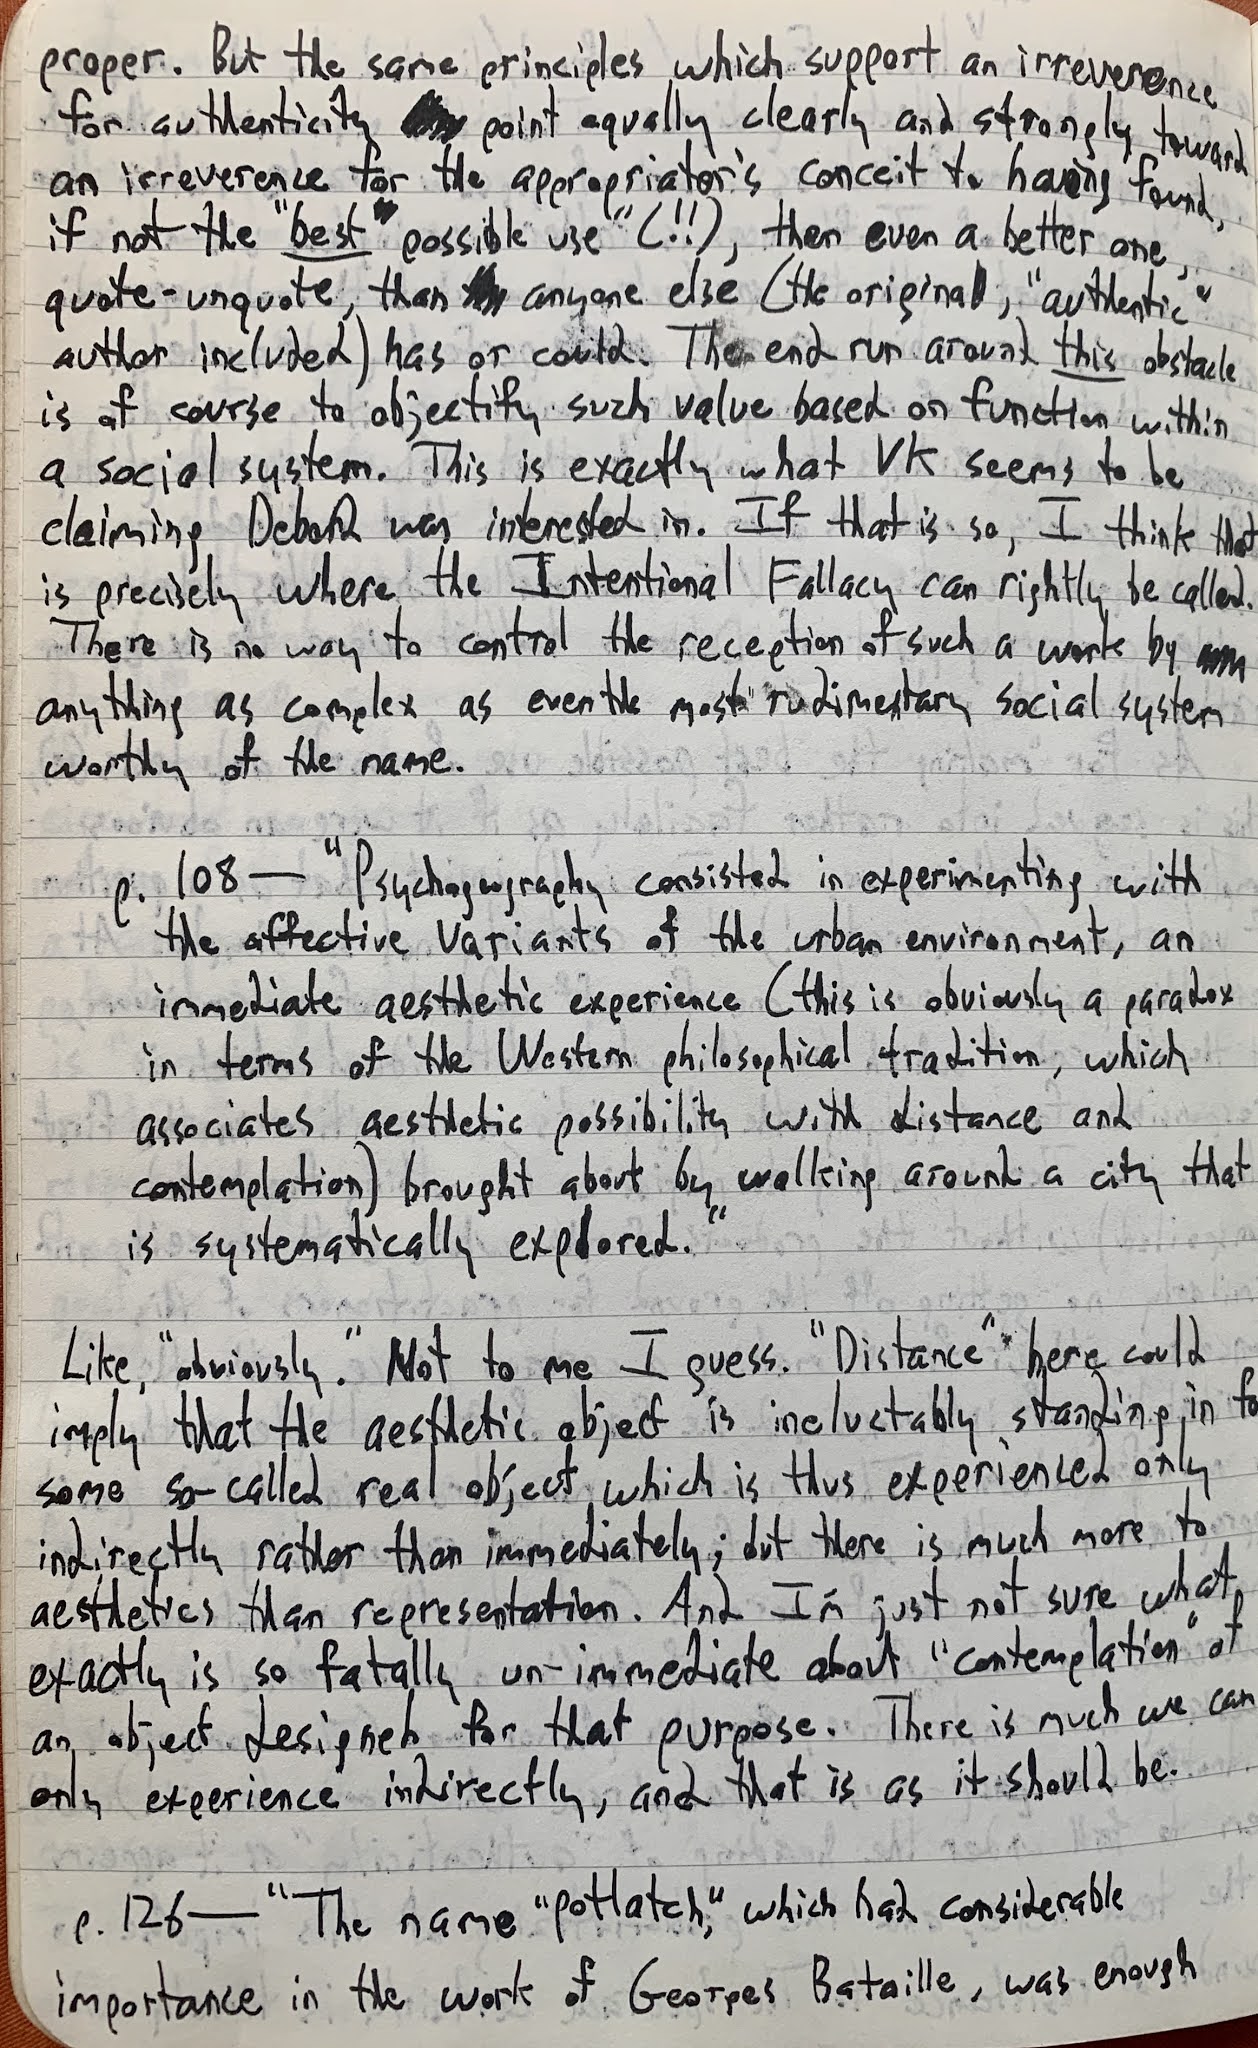 proper. But the same principles which support an irreverence
for authenticity point equally clearly and strongly toward
an irreverence for the appropriator's conceit to having found,
if not the "best" possible use" (!!), then even a better one,
quote-unquote, than anyone else (the original, "authentic"
author included) has or could. The end run around this obstacle
is of course to objectify such value based on function within
a social system. This is exactly what VK seems to be
claiming Debord was interested in. If that is so, I think that
is precisely where the Intentional Fallacy can rightly be called.
There is no way to control the reception of such a work by
anything as complex as even the most rudimentary social system
worthy of the name.
p. 108— "Psychogeography consisted in experimenting with
the affective variants of the urban environment, an
immediate aesthetic experience (this is obviously a paradox
in terms of the Western philosophical tradition, which
associates aesthetic possibility with distance and
contemplation) brought about by walking around a city that
is systematically explored."
Like, "obviously." Not to me I guess. "Distance" here could
imply that the aesthetic object is ineluctably standing in fo
some so-called real object, which is thus experienced only
indirectly rather than immediately; but there is much more to
aesthetics than representation. And I'm just not sure what
exactly is so fatally un-immediate about "contemplation" of
an object designed for that purpose. There is much we can
only experience indirectly, and that is as it should be.
p. 126— "The name "potlatch," which had considerable
importance in the work of Georges Bataille, was enough